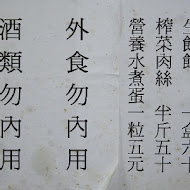 一盒六
榨菜肉絲 半斤五十
營養水煮蛋一粒五元
外食勿內用
酒類勿內用